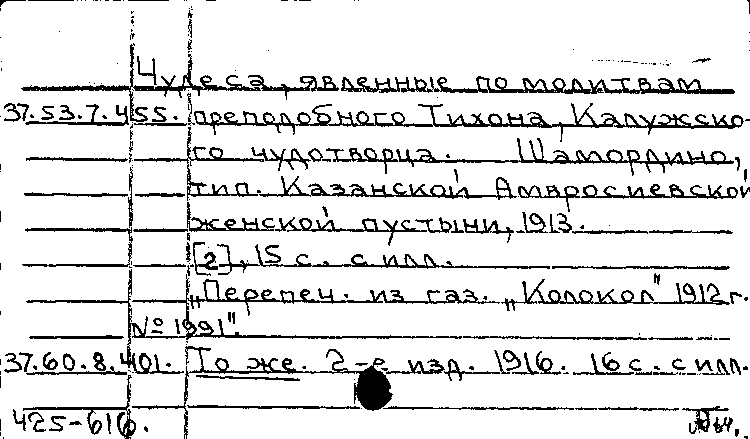 Чудеса, явленные по молитвам
37.53.7.455. преподобного Тихона, Калужско-
го чудотворца. Шамордино,
тип. Казанской Амвросиевской
женской пустыни, 1913.
[2], 15 с. с илл.
„Перепеч. из газ. „Колокол" 1912 г.
№ 1991".
37.60.8.401. То же. 2-е изд. 1916. 16 с. с илл.
425-616.